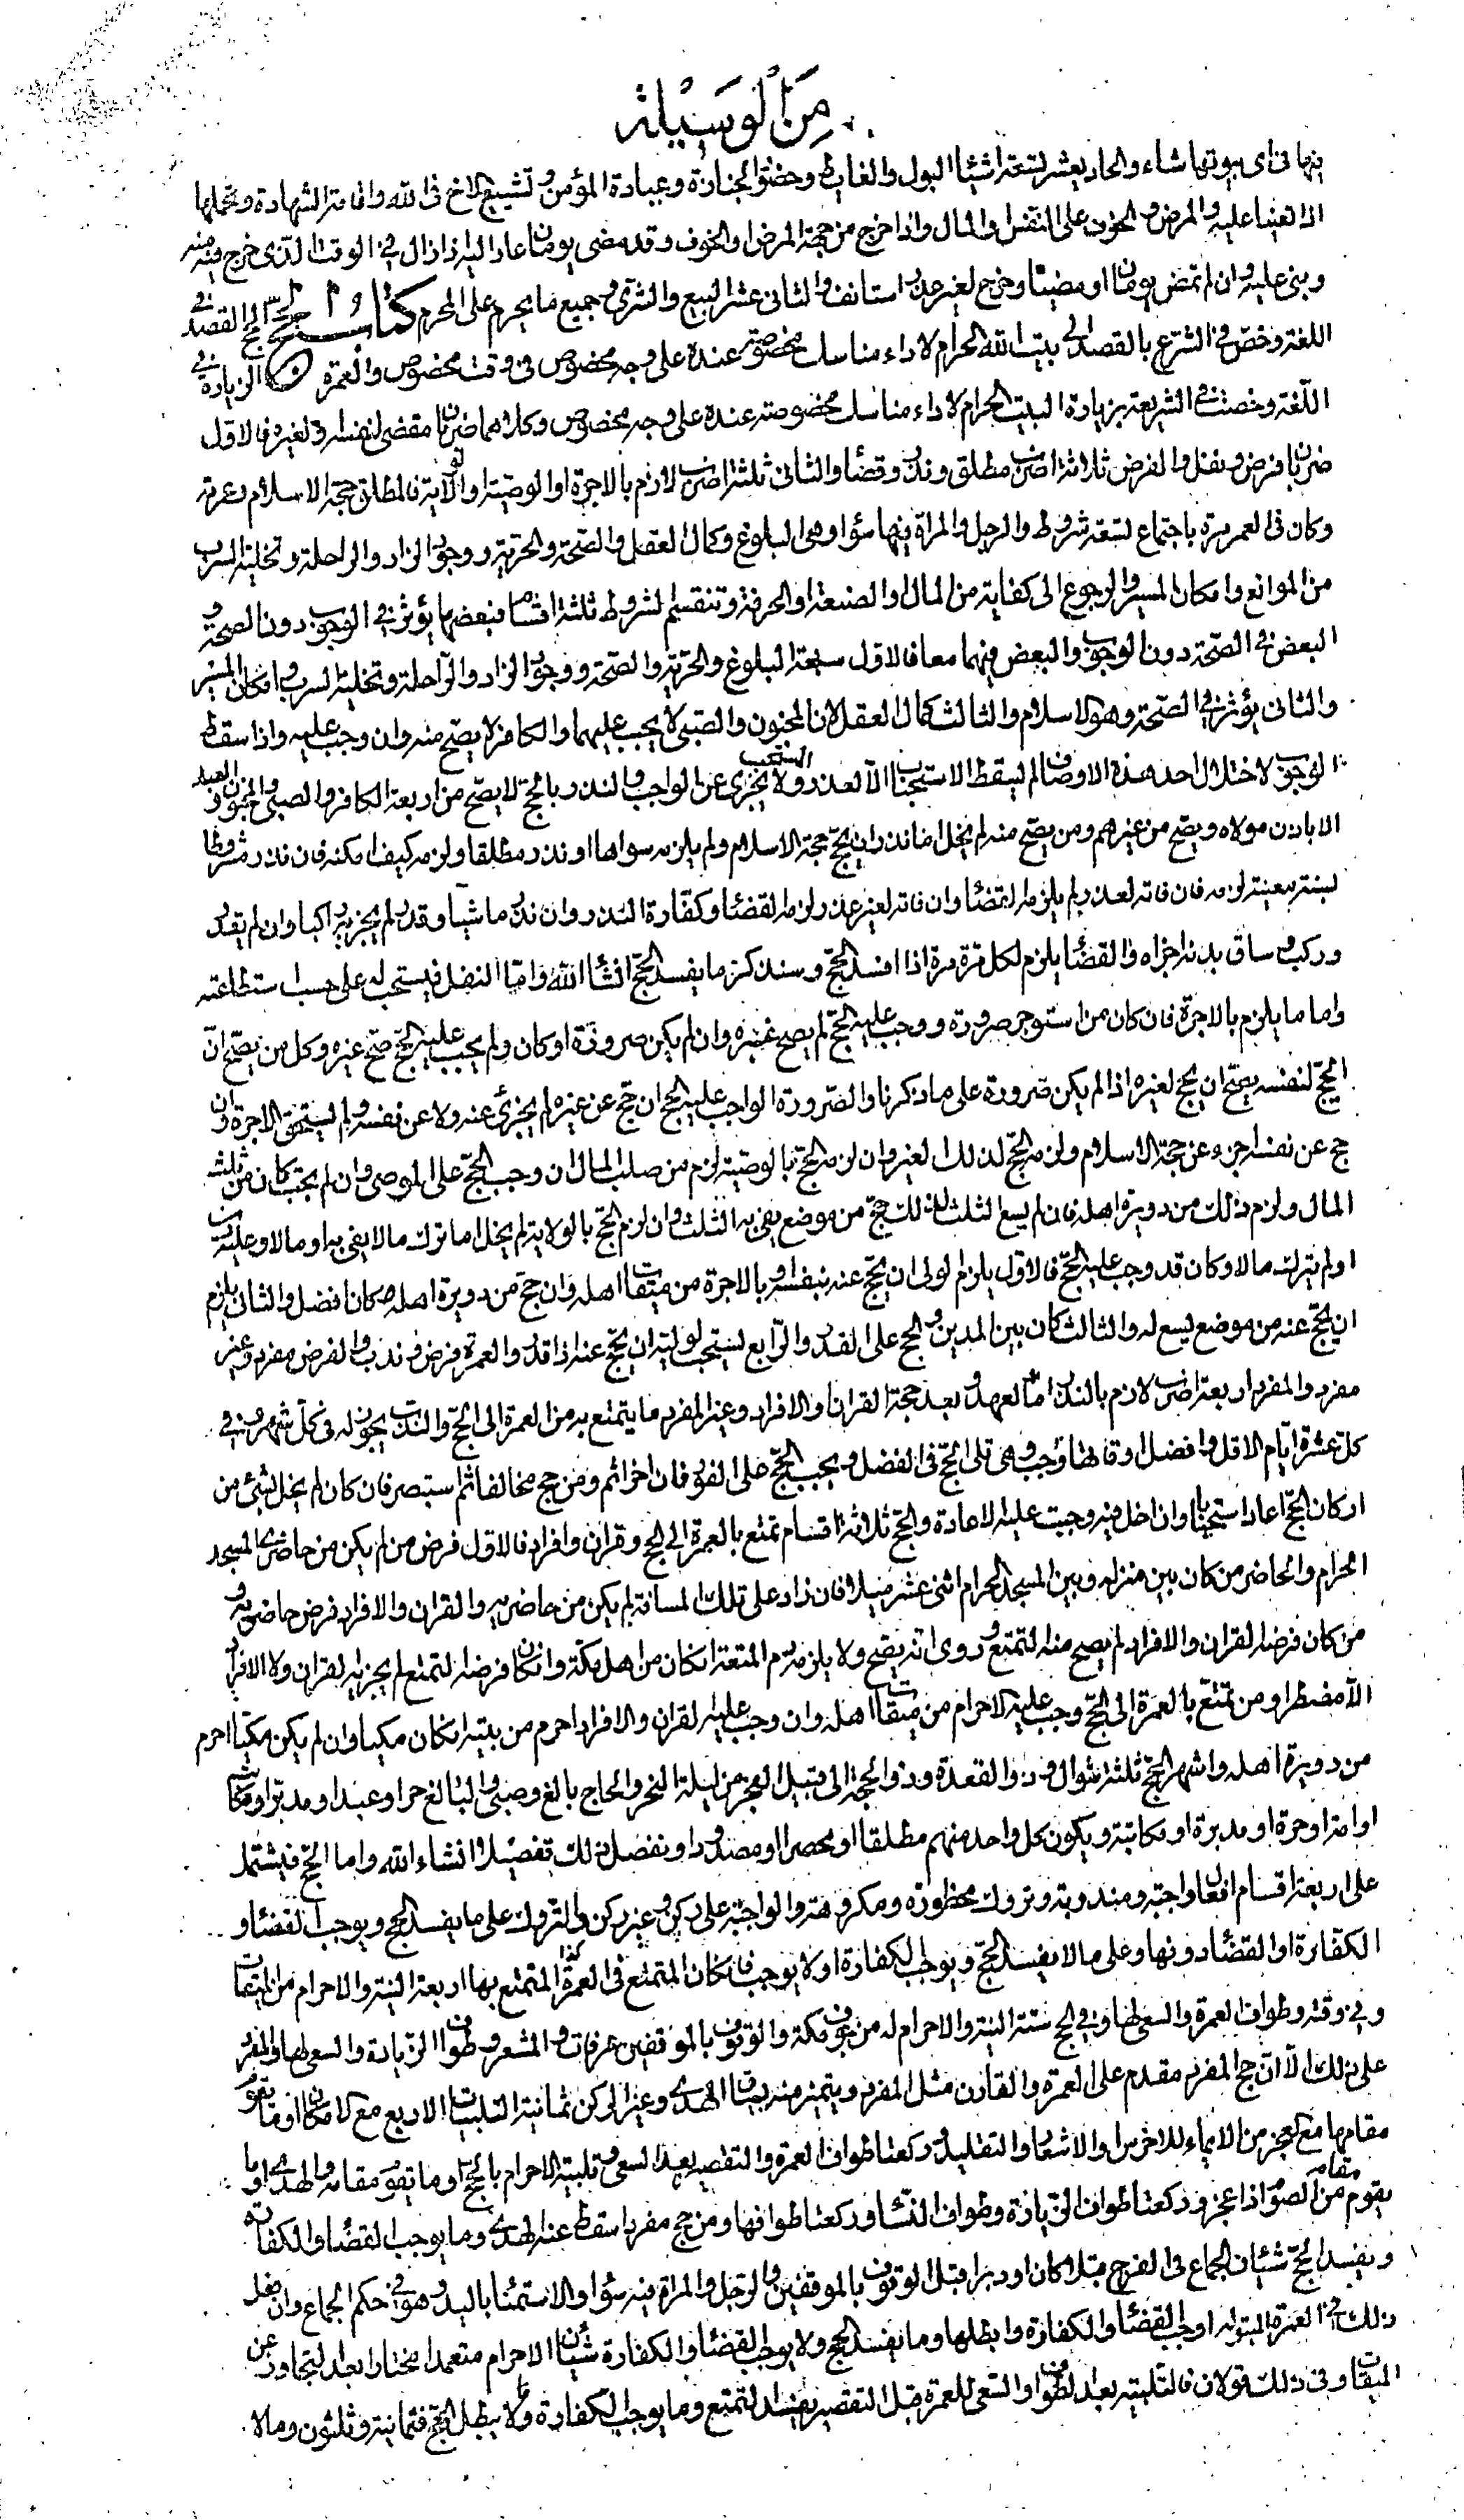 من الوسيلة
بنها في اى بيوتها شاء والحاد يعشر لتسعة اشياء البول والغايط وحضور الجنازة وعيادة المؤمن وتشييع الاخ في الله واقامة الشهادة وتحملها
اذا تعينا عليه والمرض والخوف على النفس والمال واذا خرج من جهة المرض او الخوف وقد مضى يومان عاد اليه اذا زال في الوقت الذي خرج فيه منه
وبنى عليه وان لم تمض يومان او مضيتا وخرج لغير عذر استانف والثاني عشر البيع والشرى وجميع ما يحرم على المحرم كتاب الحج الحج القصد في
اللغة وخص في الشرع بالقصد الى بيت الله الحرام لاداء مناسك مخصوصة عنده على وجه مخصوص في وقت مخصوص والعمرة الزيادة في
اللغة وخصت في الشريعة بزيادة البيت الحرام لاداء مناسك مخصوصة عنده على وجه مخصوص وكلاهما ضربان مقضى لنفسه ولغيره فالاول
ضربان فرض ونفل والفرض ثلاثة اضرب مطلق ونذر وقضاء والثاني ثلثة اضرب لازم بالاجرة او الوصية او الولاية فالمطلق حجة الاسلام وعمرته
وكان في العمر مرة باجتماع تسعة شروط والرجل والمراة فيها سواء وهي البلوغ وكمال العقل والصحة والحرية ووجود الزاد والراحلة وتخلية السرب
من الموانع وامكان المسير والرجوع الى كفاية من المال او الصنعة او الحرفة وتنقسم الشروط ثلثة اقسام فبعضها يؤثر في الوجوب دون الصحة و
البعض في الصحة دون الوجوب والبعض فيهما معا فالاول سبعة البلوغ والحرية والصحة ووجود الزاد والراحلة وتخلية السرب وامكان المسير
والثاني يؤثر في الصحة وهو الاسلام والثالث كمال العقل لان المجنون والصبي لا يجب عليهما والكافر لا يصح منه وان وجب عليه واذا سقط
الوجوب لاختلال احد هذه الاوصاف لم يسقط الاستحباب الا لعذر ولا يجزى المستحب عن الواجب والنذر بالحج لا يصح من اربعة الكافر والصبي والمجنون والعبد
الا باذن مولاه ويصح من غيرهم ومن يصح منه لم يخل اما نذر ان يحج حجة الاسلام ولم يلزمه سواها او نذر مطلقا ولزمه كيف امكنه فان نذر مشروطا
بسنة معينة لزمه فان فاته لعذر لم يلزمه القضاء وان فاته لغير عذر لزمه القضاء وكفارة النذر وان نذر ماشيا وقدر لم يجزيه راكبا وان لم يقدر
وركب وساق بدنة اجزاه والقضاء يلزم لكل مرة مرة اذا افسد الحج وسنذكر ما يفسد الحج انشاء الله واما النفل فيستحب له على حسب استطاعته
واما ما يلزم بالاجرة فان كان من استوجر صرورة ووجب عليه الحج لم يصح عن غيره وان لم يكن صرورة او كان ولم يجب عليه الحج صح عن غيره وكل من يصح ان
الحج لنفسه يصح ان يحج لغيره اذا لم يكن صرورة على ما ذكرنا والصرورة الواجب عليه الحج ان حج عن غيره لم يجزئ عنه ولا عن نفسه ولم يستحق الاجرة وان
حج عن نفسه اجزء عن حجة الاسلام ولزمه الحج لذلك الغير وان لزمه الحج بالوصية لزم من صلب المال ان وجب الحج على الموصى وان لم يجب كان من ثلث
المال ولزم ذلك من دويرة اهله فان لم يسع الثلث لذلك حج من موضع يفى به الثلث وان لزم الحج بالولاية لم يخل اما ترك مالا يفى به او مالا وعليه دين
او لم يترك مالا وكان قد وجب عليه الحج فالاول يلزم الولى ان يحج عنه بنفسه او بالاجرة من ميقات اهله وان حج من دويرة اهله كان افضل والثاني يلزم
ان يحج عنه من موضع يسع له والثالث كان بين الدين والحج على القدر والرابع يستحب لوليه ان يحج عنه اذا قدر والعمرة فرض وندب والفرض مفرد وغير
مفرد والمفرد اربعة اضرب لازم بالنذر او العهد وبعد حجة القران والافراد وغير المفرد ما يتمتع به من العمرة الى الحج والندب يجوز له في كل شهر وفي
كل عشرة ايام الاقل وافضل اوقاتها رجب وهي تلى الحج في الفضل ويجب الحج على الفور فان اخر اثم ومن حج مخالفا ثم استبصر فان كان لم يخل بشئ من
اركان الحج اعاد استحبابا وان اخل فيه وجبت عليه الاعادة والحج ثلاثة اقسام تمتع بالعمرة الى الحج وقران وافراد فالاول فرض من لم يكن من حاضرى المسجد
الحرام والحاضر من كان بين منزله وبين المسجد الحرام اثنى عشر ميلا فان زاد على تلك المسافة لم يكن من حاضريه والقران والافراد فرض حاضريه و
من كان فرضه القران والافراد لم يصح منه التمتع وروى انه يصح ولا يلزمه دم المتعة انكان من اهل مكة وانكان فرضه التمتع لم يجزيه القران ولا الافراد
الا مضطرا ومن تمتع بالعمرة الى الحج وجب عليه الاحرام من ميقات اهله وان وجب عليه القران والافراد احرم من بيته انكان مكيا وان لم يكن مكيا احرم
من دويرة اهله واشهر الحج ثلثة شوال وذوالقعدة وذوالحجة الى قبيل الفجر من ليلة النحر والحاج بالغ وصبي والبالغ حر او عبد او مدبر او مكاتب
او امة او حرة او مدبرة او مكاتبة ويكون كل واحد منهم مطلقا او محصرا او مصدودا ونفصل ذلك تفصيلا انشاء الله واما الحج فيشتمل
على اربعة اقسام افعال واجبة ومندوبة وتروك محظورة ومكروهة والواجبة على ركن وغير ركن والتروك على ما يفسد الحج ويوجب القضاء و
الكفارة او القضاء دونها وعلى ما لا يفسد الحج ويوجب الكفارة او لا يوجب فاركان المتمتع في العمرة المتمتع بها اربعة النية والاحرام من الميقات
وفي وقته وطواف العمرة والسعى لها وفي الحج ستة النية والاحرام له من جوف مكة والوقوف بالموقفين عرفات والمشعر وطواف الزيادة والسعى لها والمفرد
على ذلك الا ان حج المفرد مقدم على العمرة والقارن مثل المفرد ويتميز منه بسياق الهدى وغير الركن ثمانية التلبيات الاربع مع الامكان او ما يقوم
مقامها مع العجز من الايماء للاخرس او الاشعار والتقليد وركعتا طواف العمرة والتقصير بعد السعى وتلبية الاحرام بالحج او ما يقوم مقامه والهدى او ما
يقوم مقامه من الصوم اذا عجز وركعتا طواف الزيادة وطواف النساء وركعتا طوافها ومن حج مفردا سقط عنه الهدى وما يوجب القضاء والكفارة
ويفسد الحج شيئان الجماع في الفرج قبلا كان او دبرا قبل الوقوف بالموقفين والرجل والمراة فيه سواء والاستمناء باليد وهو في حكم الجماع وان فعل
ذلك في العمرة المبتولة اوجب القضاء والكفارة وابطلها وما يفسد الحج ولا يوجب القضاء والكفارة شيئان الاحرام متعمدا مختارا بعد التجاوز عن
الميقات وفي ذلك قولان فالتلبية بعد الطواف والسعى للعمرة قبل التقصير يفسد التمتع وما يوجب الكفارة ولا يبطل الحج فثمانية وثلثون وما لا